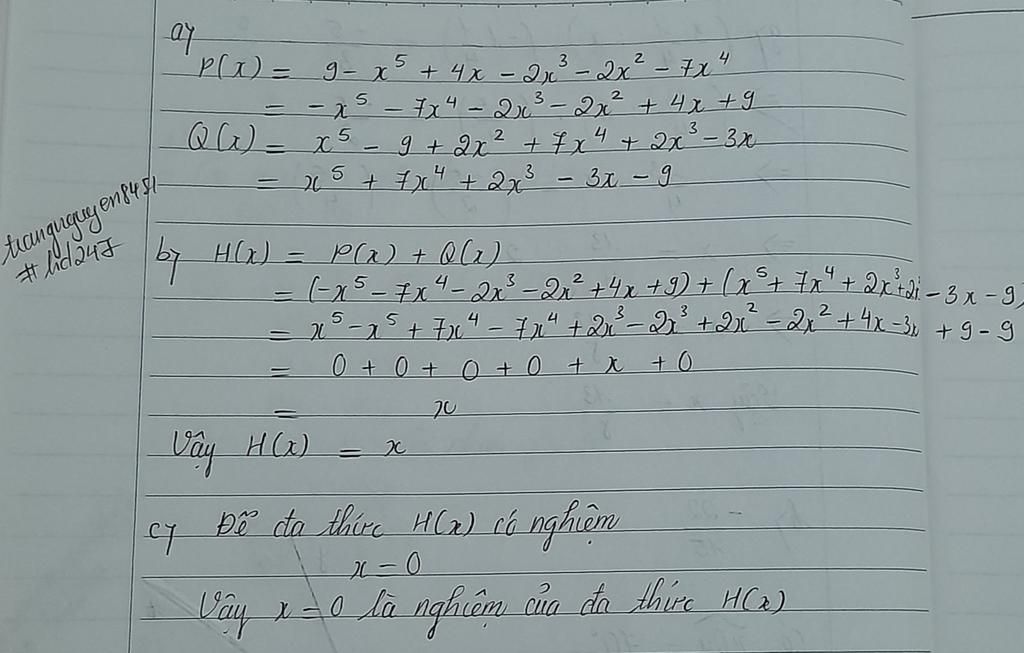 a)
P(x) = 9 - x⁵ + 4x - 2x³ - 2x² - 7x⁴
= -x⁵ - 7x⁴ - 2x³ - 2x² + 4x + 9
Q(x) = x⁵ - 9 + 2x² + 7x⁴ + 2x³ - 3x
= x⁵ + 7x⁴ + 2x³ - 3x - 9
#hd247
b) H(x) = P(x) + Q(x)
= (-x⁵ - 7x⁴ - 2x³ - 2x² + 4x + 9) + (x⁵ + 7x⁴ + 2x³ + 2 - 3x - 9)
= x⁵ - x⁵ + 7x⁴ - 7x⁴ + 2x³ - 2x³ + 2x² - 2x² + 4x - 3x + 9 - 9
= 0 + 0 + 0 + 0 + x + 0
= x
Vậy H(x) = x
c) Để đa thức H(x) có nghiệm
x = 0
Vậy x = 0 là nghiệm của đa thức H(x)